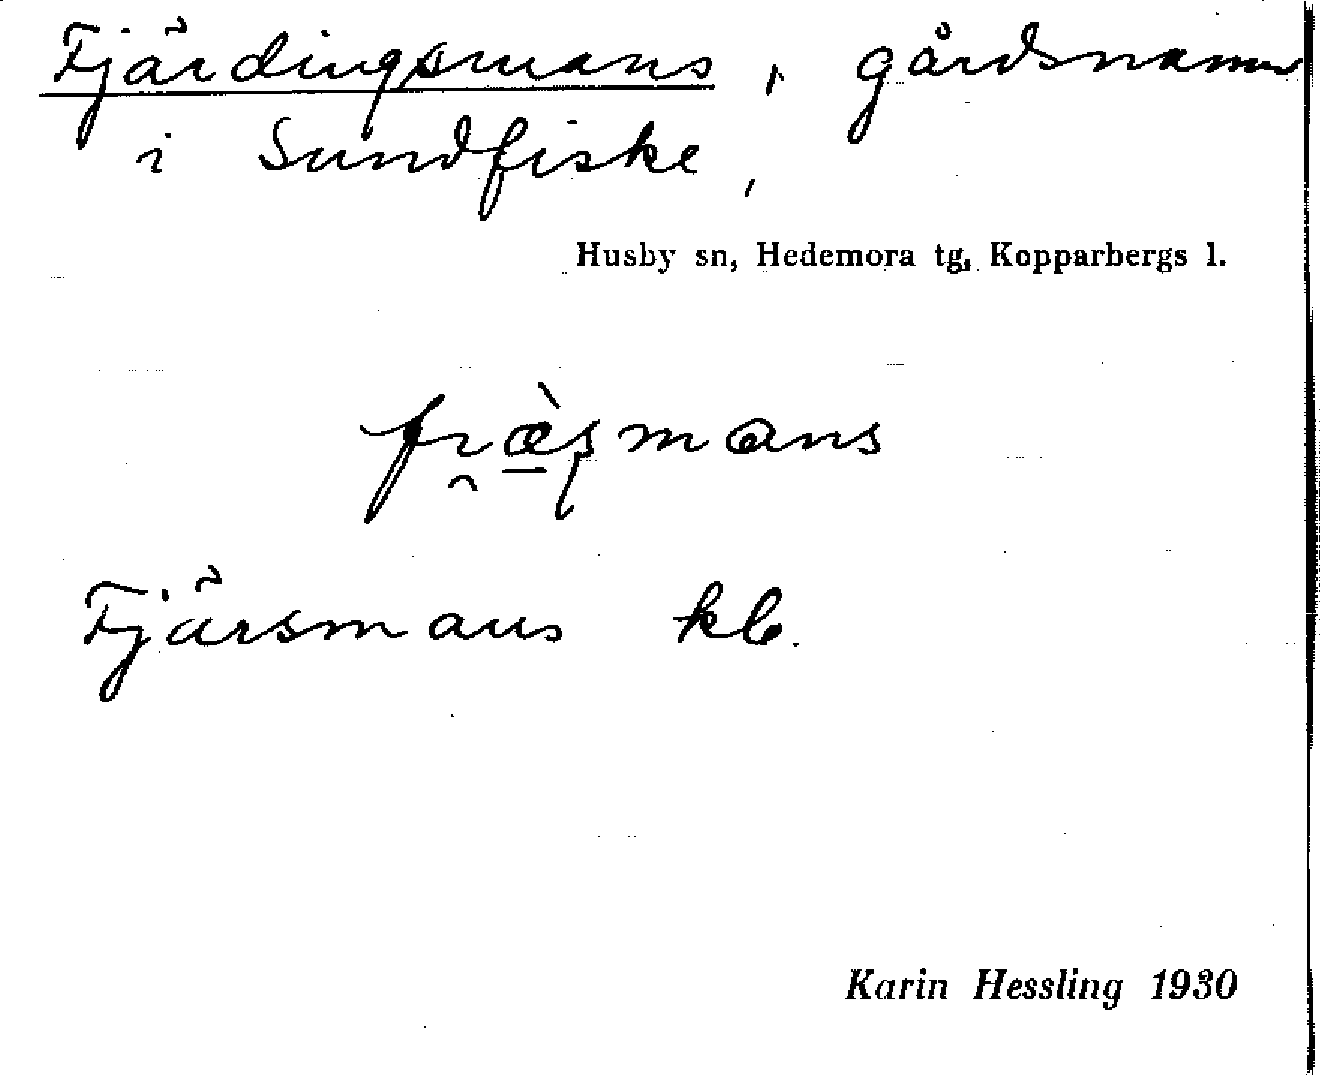 Fjärdingsmans, gårdsnamn
i Sundfiske,
Husby sn, Hedemora tg, Kopparbergs l.
fı̯æ̀ʂmans
Fjärsmans kb.
Karin Hessling 1930